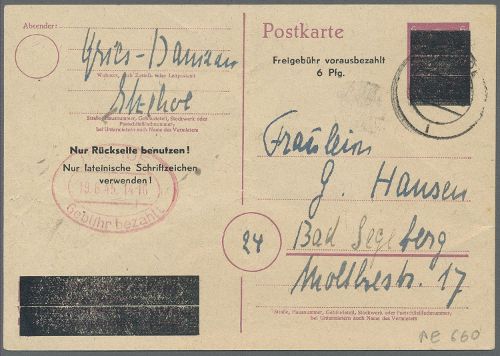 Absender:
Postkarte
Freigebühr vorausbezahlt
6 Pfg.
Wohnort, auch Zustell- oder Leitpostamt
Itzehoe
Straße, Hausnummer, Gebäudeteil, Stockwerk oder
Postschließfachnummer,
bei Untermietern auch Name des Vermieters
Nur Rückseite benutzen!
Nur lateinische Schriftzeichen
verwenden!
19.6.45.
Gebühr bezahlt
Fräulein
G. Hansen
24
Bad Segeberg
Moltkestr. 17
Straße, Hausnummer, Gebäudeteil, Stockwerk oder Postschließfachnummer,
bei Untermietern auch Name des Vermieters
AE 660